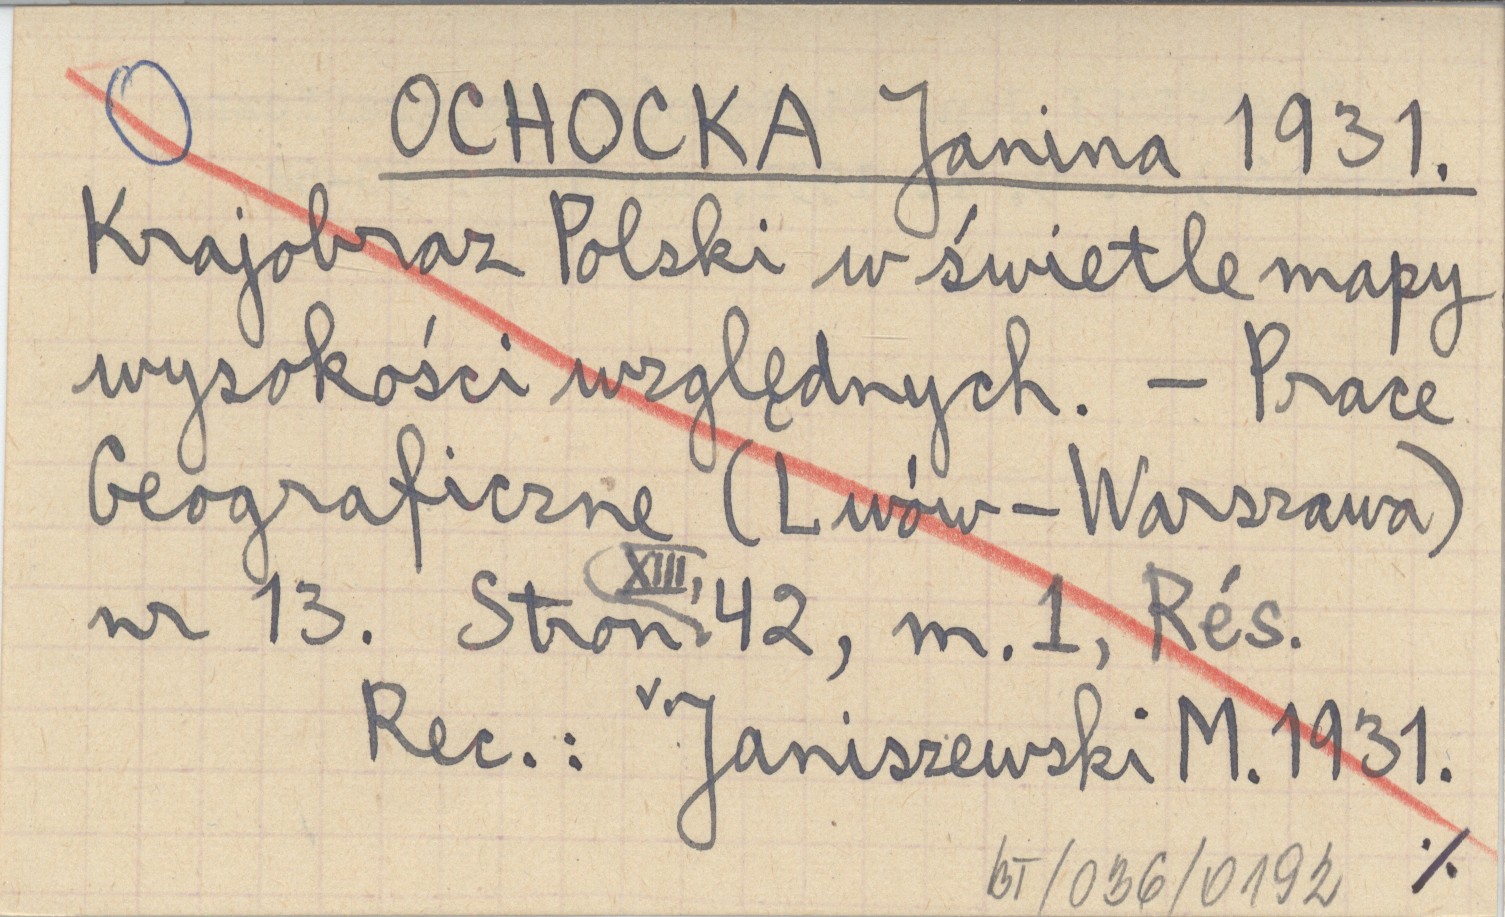 O OCHOCKA Janina 1931.
Krajobraz Polski w świetle mapy
wysokości względnych. – Prace
Geograficzne (Lwów–Warszawa)
nr 13. Stron XIII, 42, m. 1, Rés.
Rec.: v. Janiszewski M. 1931.
BT/036/0192 ./.